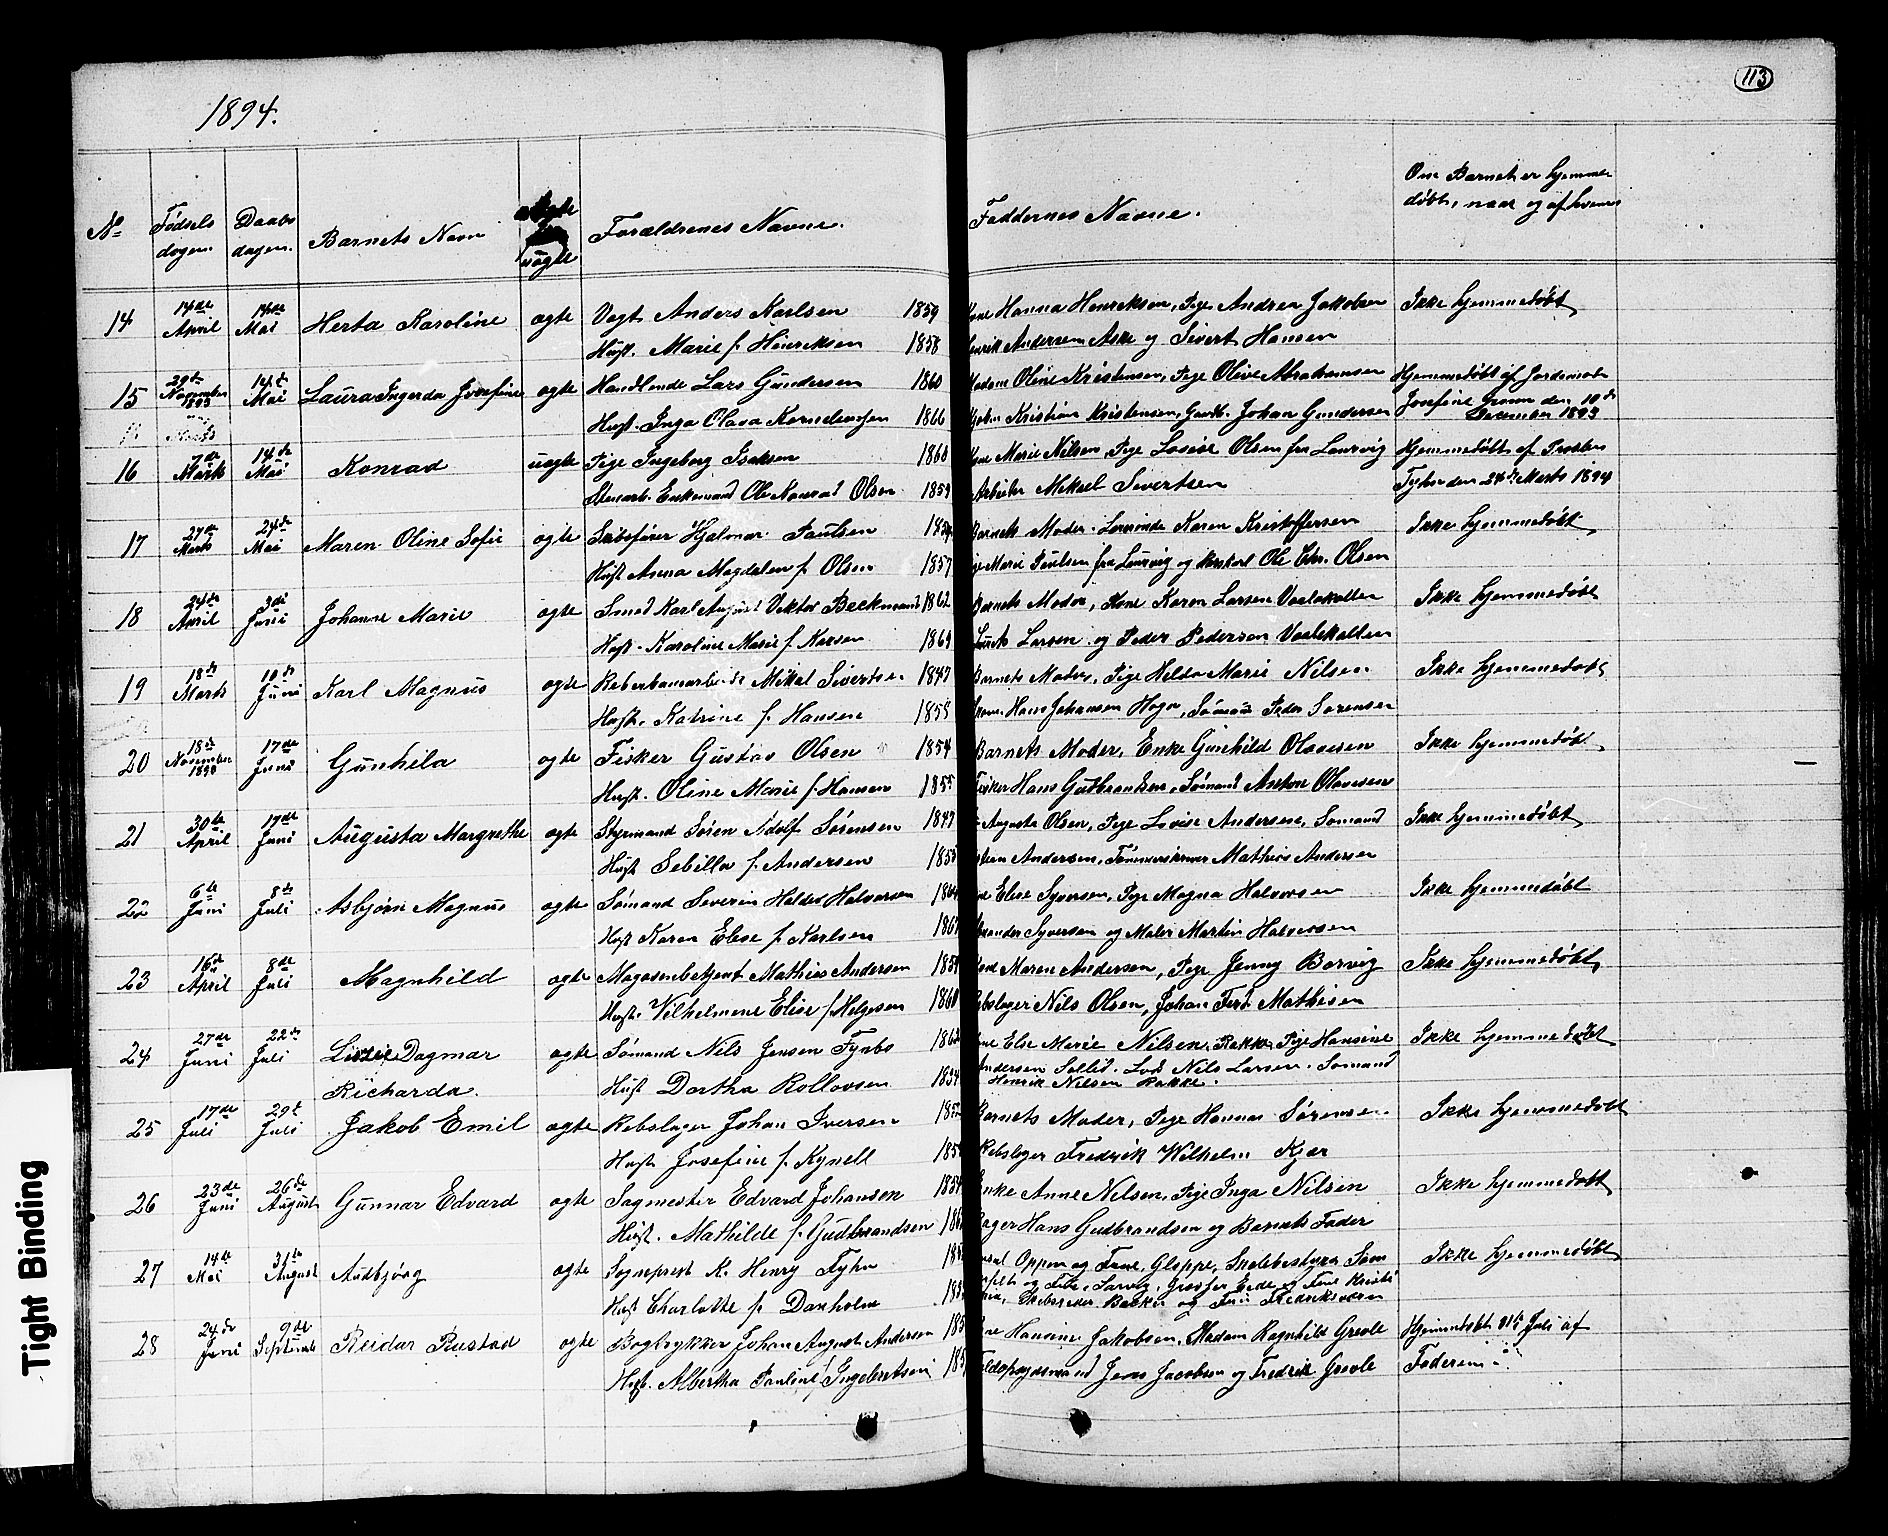 113
1894.
No Fødselsdagen. Daabsdagen. Barnets Navn uægte Forældrenes Navne. Faddernes Navne. Om Barnet er hjemmedøbt, naar og af hvem
14 14de April 14de Mai Herta Karoline ægte Vogt. Anders Karlsen 1859 Hanna Henriksen, Pige Andrea Jakobsen Ikke hjemmedøbt
Hust. Marie f. Henriksen 1858 Andersen Aske og Sivert Hansen
15 29de November 1893 14de Mai Laura Ingerda Josefine ægte Handlende Lars Gundersen 1860 Madam Oline Kristensen, Pige Olive Abrahamsen Hjemmedøbt af Jordemoder
Hust. Inga Olava 1866 Kristian Kristensen, Johan Gundersen Josefine den 10de December 1893
16 7de Marts 14de Mai Konrad uægte Pige Ingeborg Isaksen 1860 Kone Marie Nilsen, Pige Lovise Olsen fra Laurvig Hjemmedøbt af Presten
Stenarb. Enkemand Ole Konrad Olsen 1859 Arbeider Mikael Sivertsen Fyhn den 24de Marts 1894
17 27de Marts 24de Mai Maren Oline Sofie ægte Skibsfører Hjalmar Paulsen Barnets Moder. Lovinde Karen Kristoffersen Ikke hjemmedøbt
Hust Anna Magdalen f. Olsen 1857 Marie Paulsen fra Laurvig og Ole Chr. Olsen
18 24de April 3de Juni Johanne Marie ægte Smed Karl August Viktor Beckmand 1862 Barnets Moder, Kone Karen Larsen Vaalekolten Ikke hjemmedøbt
Hust. Karoline Marie f. Larsen 1869 Larsen og Peder Pedersen Vaalekolten
19 18de Marts 10de Juni Karl Magnus ægte Reberbanearbeider Mikal Sivertsen 1847 Barnets Moder, Pige Helda Marie Nilsen Ikke hjemmedøbt
Hust. Katrine f. Hansen 1855 Hans Johansen Hagn, Sømand Peder Sørensen
20 18de November 1893 17de Juni Gunhild ægte Fisker Gustav Olsen 1854 Barnets Moder, Enke Gunhild Olavesen Ikke hjemmedøbt
Hust. Oline Marie f. Hansen 1855 Fisker Hans Gudbrandsen, Sømand Anton Olavesen
21 30te April 17de Juni Augusta Margrethe ægte Styrmand Søren Adolf Sørensen 1847 Augusta Olsen, Pige Lovise Andersen, Sømand Ikke hjemmedøbt
Hust Sebilla f. Andersen Andersen, Tømmermand Mathias Andersen
22 6te Juni 8de Juli Asbjørn Magnus ægte Sømand Severin Heldor Halvorsen Elise Syversen, Pige Magna Halvorsen Ikke hjemmedøbt
Hust Karen Elise f. Karlsen Syversen og Maler Martin Halvorsen
23 16de April 8de Juli Magnhild ægte Magasenbetjent Mathias Andersen Maren Andersen, Pige Jenny Borvig Ikke hjemmedøbt
Hust. Vilhelmine Elise f. Helgesen 1860 Rebslager Nils Olsen, Johan Ferd Mathisen
24 27de Juni 22de Juli Lizzie Dagmar ægte Sømand Nils Jensen Fynbo 1862 Else Marie Nilsen, Rakke, Pige Hansine Ikke hjemmedøbt
Richarda. Hust Dortha Rollovsen Andersen Lods Nils Larsen. Sømand
Henrik Nilsen Rakke.
25 17de Juli 29de Juli Jakob Emil ægte Rebslager Johan Iversen Barnets Moder, Pige Hanna Sørensen Ikke hjemmedøbt
Hust Josefine f. Kynell Rebslager Fredrik Wilhelm Kjær
26 23de Juni 26de August Gunnar Edvard ægte Sagmester Edvard Johansen Enke Anne Nilsen, Pige Inga Nilsen Ikke hjemmedøbt
Hust. Mathilde f. Gudbrandsen Hans Gudbrandsen og Barnets Fader
27 14de Mai 31te August Audbjørg ægte Sogneprest K. Henry Fyhn Oppen og Frue, Gloppe, Skolebestyrer Som Ikke hjemmedøbt
Hust Charlotte f. Danholm og Frue, Larvig, Grosser Eide og Frue Kristi
Skibsreder Becker og Frue Fredriksværn
28 24de Juni 9de September Reidar Rustad ægte Bogtrykker Johan August Andersen Hansine Jakobsen, Madam Ragnhild Grevle Hjemmedøbt 31te Juli af
Hust. Albertha Pauline f. Ingebretsen Jens Jacobsen og Fredrik Grevle Faderen
Tight Binding